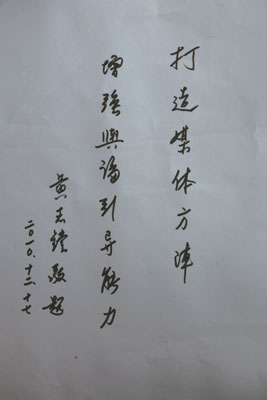 打造媒体方阵
增强舆论引导能力
黄志
敬题
二〇一〇.十二.十七